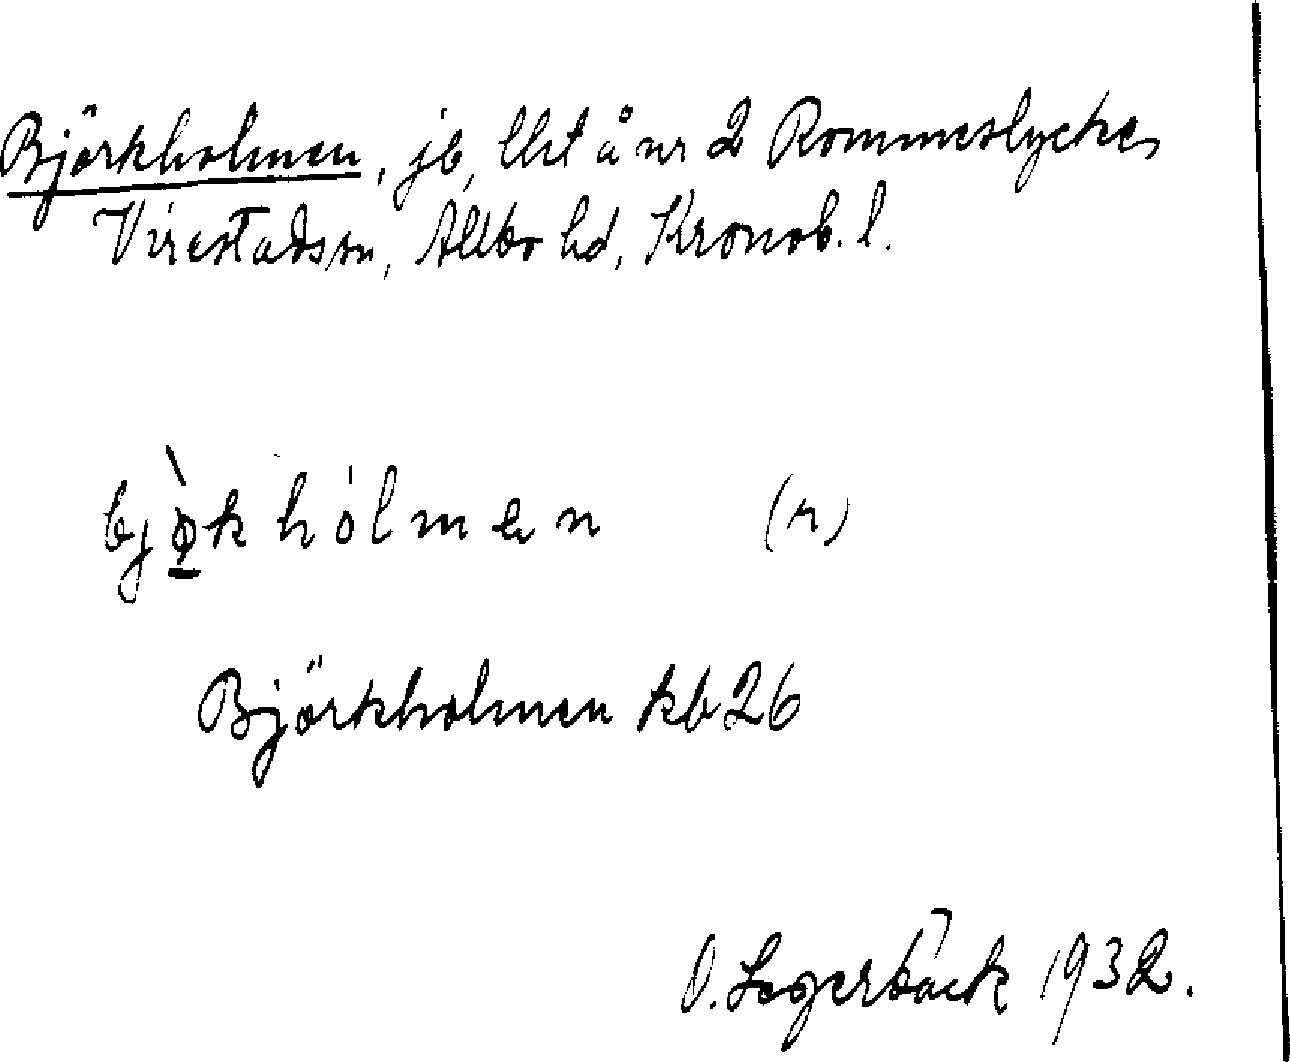 Björkholmen, jb, lht å nr 2 Rommeslycke,
Virestads sn, Allbo hd, Kronob. l.
bjø̀k hólmen (r)
Björkholmen kb 26
O. Lagerbäck 1932.